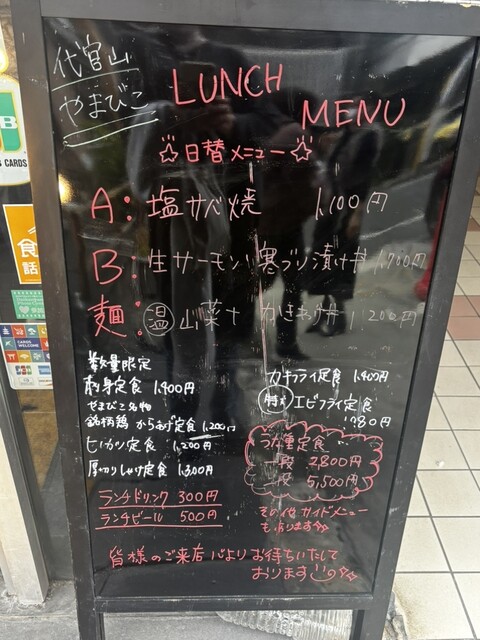 代官山
やまびこ
LUNCH
MENU
☆日替メニュー☆
A: 塩サバ焼 1,100円
B: 生サーモン・寒ブリ漬け丼 1,700円
麺: 温 山菜+かきあげ丼 1,200円
数量限定
刺身定食 1,900円
やまびこ名物
銘柄鶏 からあげ定食 1,200円
ヒレカツ定食 1,200円
厚切りしゃけ定食 1,300円
ランチドリンク 300円
ランチビール 500円
カキフライ定食 1,400円
特大 エビフライ定食
1780円
うな重定食
一段 2,800円
二段 5,500円
その他サイドメニュー
も有ります☆☆
皆様のご来店心よりお待ちいたして
おります☆☆
CARDS
食
話
CARDS WELCOME
JCB